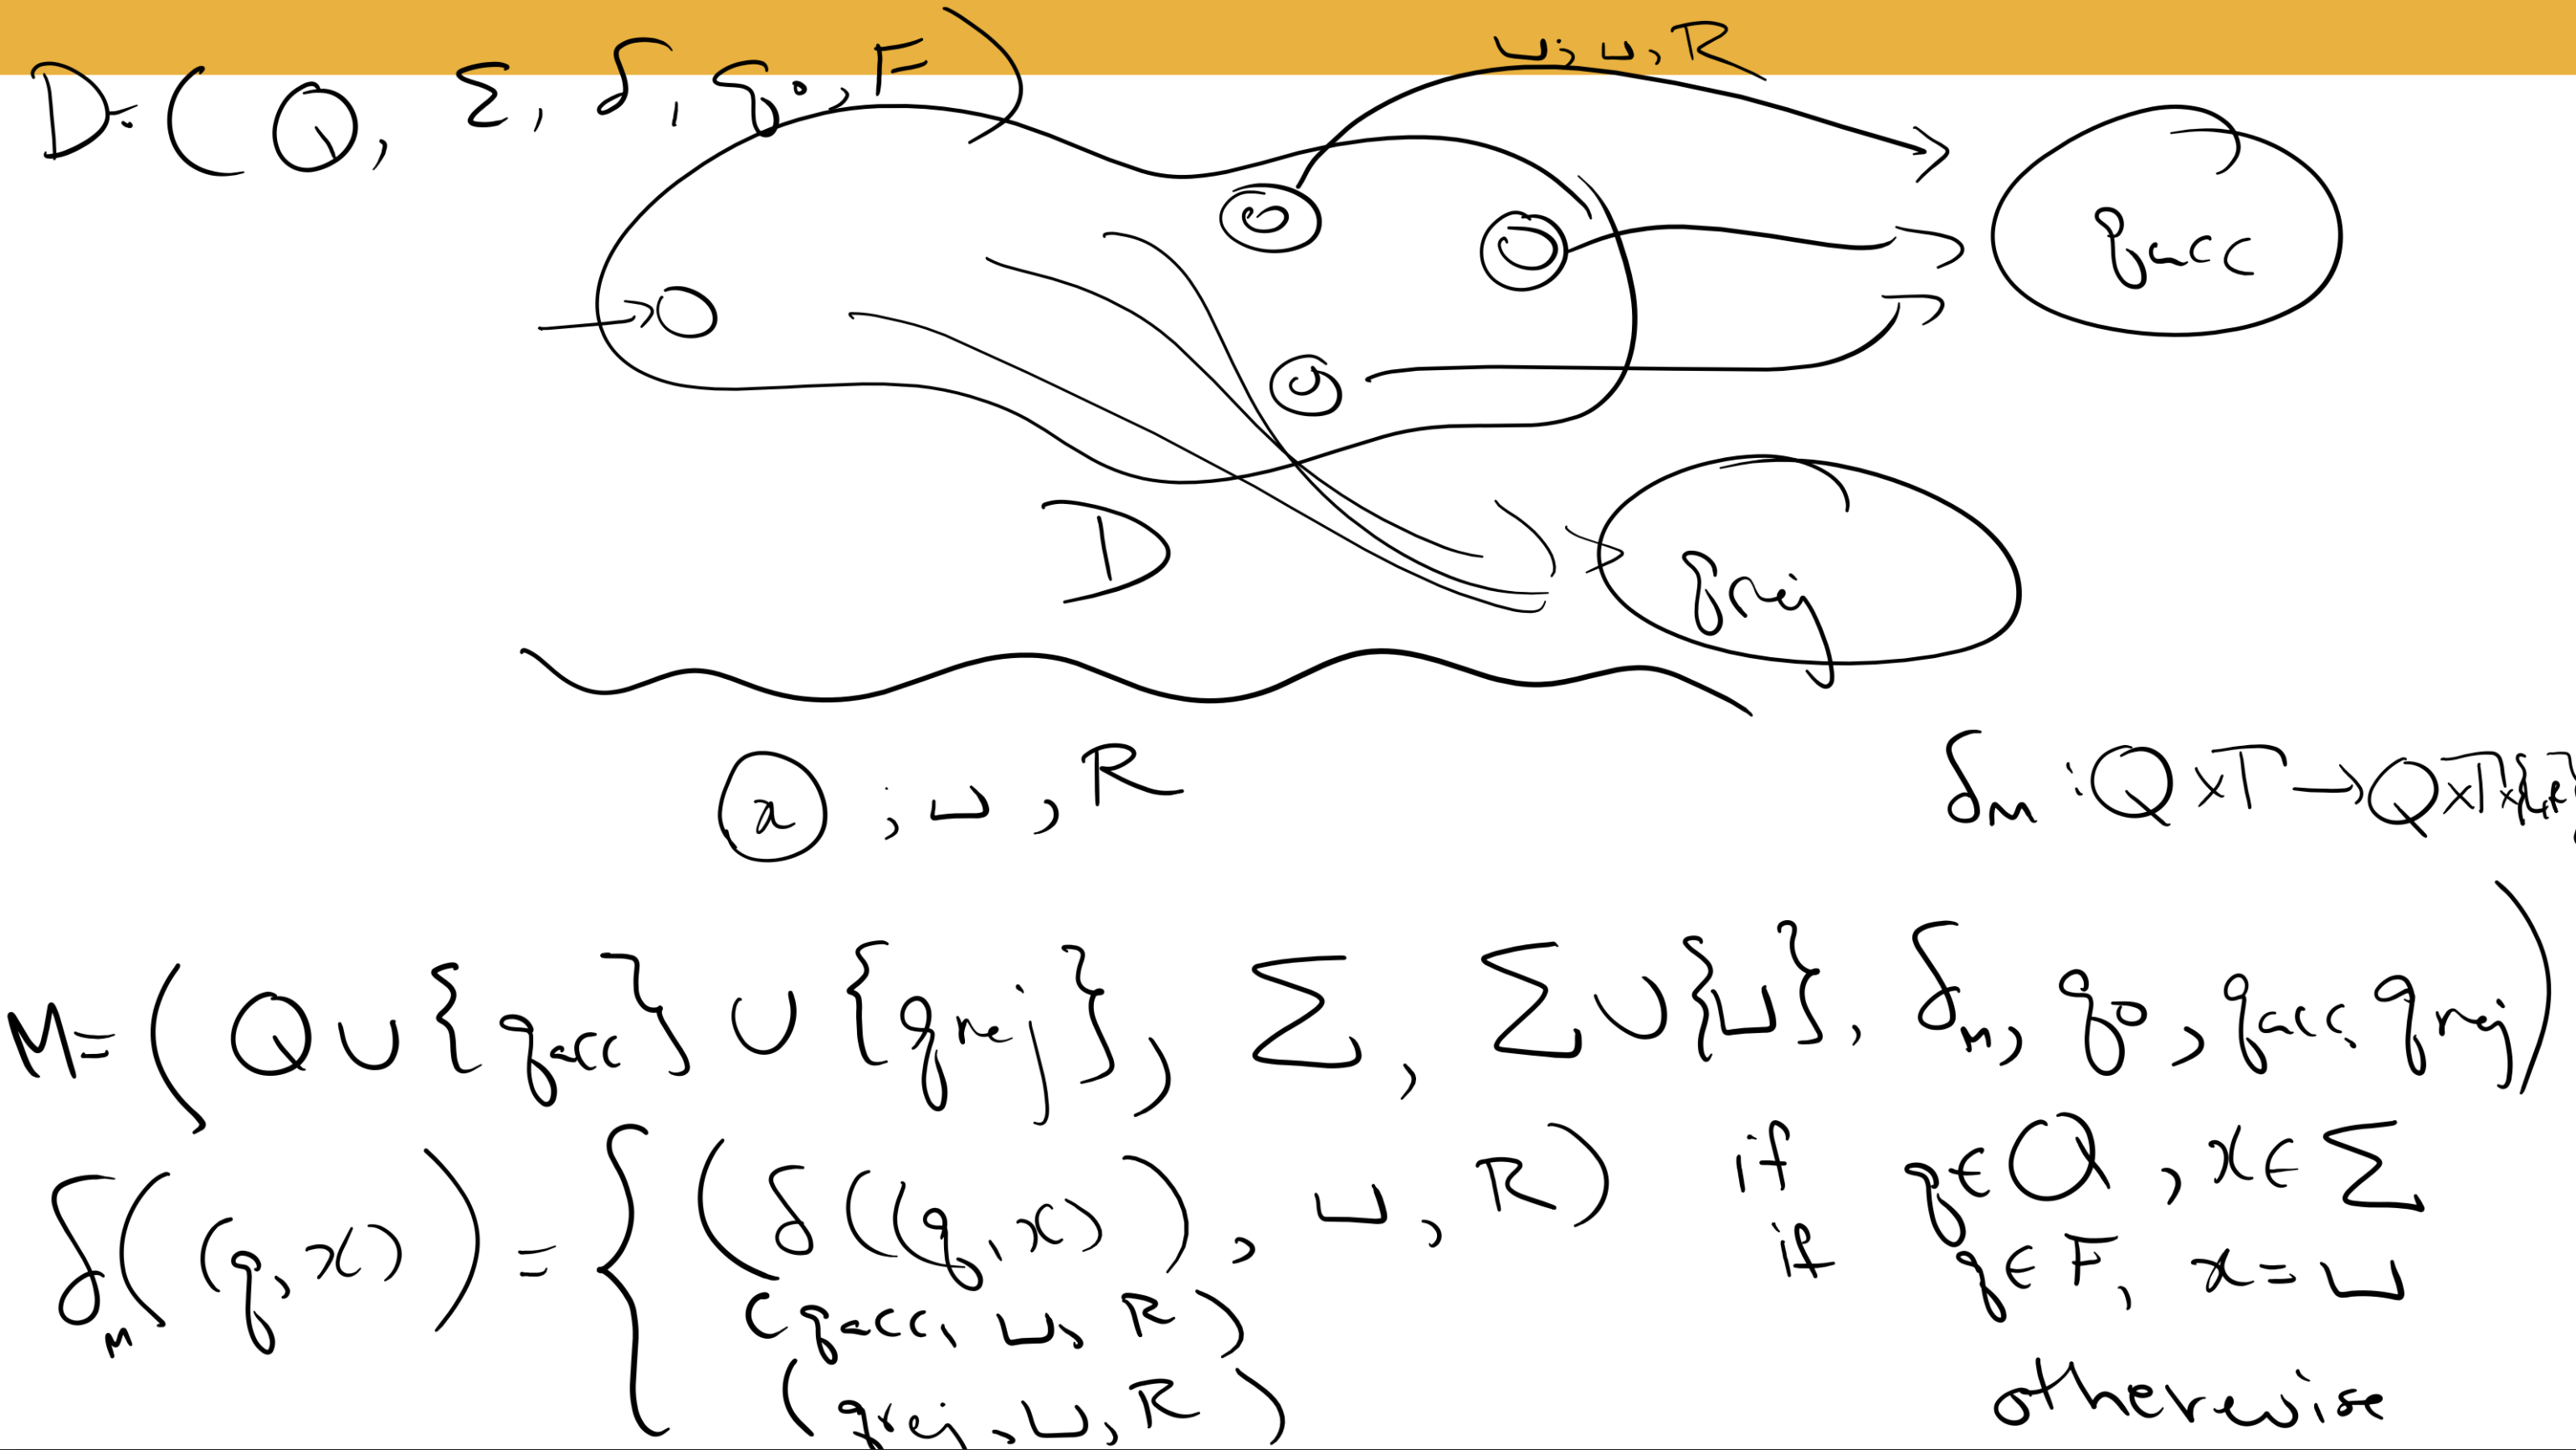 D = (Q, Σ, δ, q₀, F)
⊔; ⊔, R
q_acc
D
q_rej
a ; ⊔ , R
δ_M : Q × Γ → Q × Γ × {L, R
M = (Q ∪ {q_acc} ∪ {q_rej}, Σ, Σ ∪ {⊔}, δ_M, q₀, q_acc, q_rej)
δ_M((q, x)) = { (δ((q, x)), ⊔, R) if q ∈ Q, x ∈ Σ
(q_acc, ⊔, R) if q ∈ F, x = ⊔
(q_rej, ⊔, R) otherwise